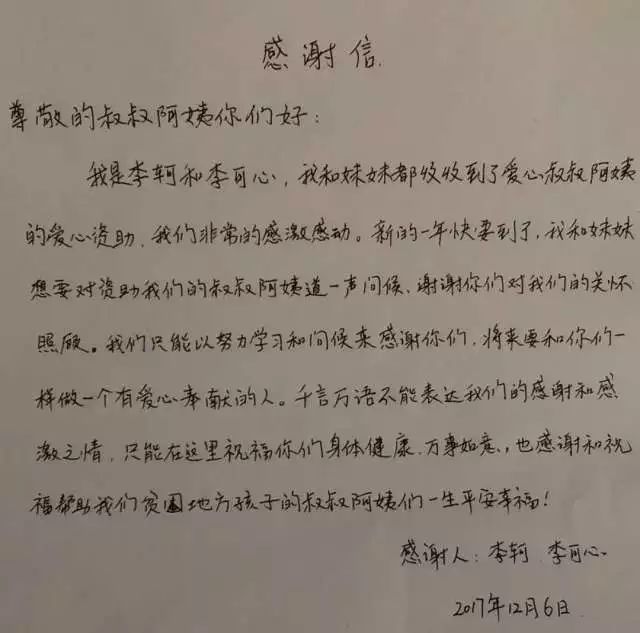 感谢信
尊敬的叔叔阿姨你们好：
我是李轲和李可心，我和妹妹都收收到了爱心叔叔阿姨
的爱心资助，我们非常的感激感动。新的一年快要到了，我和妹妹
想要对资助我们的叔叔阿姨道一声问候、谢谢你们对我们的关怀
照顾。我们只能以努力学习和问候来感谢你们，将来要和你们一
样做一个有爱心奉献的人。千言万语不能表达我们的感谢和感
激之情，只能在这里祝福你们身体健康、万事如意、，也感谢和祝
福帮助我们贫困地方孩子的叔叔阿姨们一生平安幸福！
感谢人：李轲 李可心
2017年12月6日